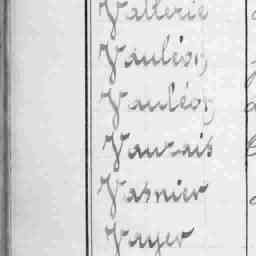 Vallerie
Vauléon
Vauléon
Vauzais
Vasnier
Vayer